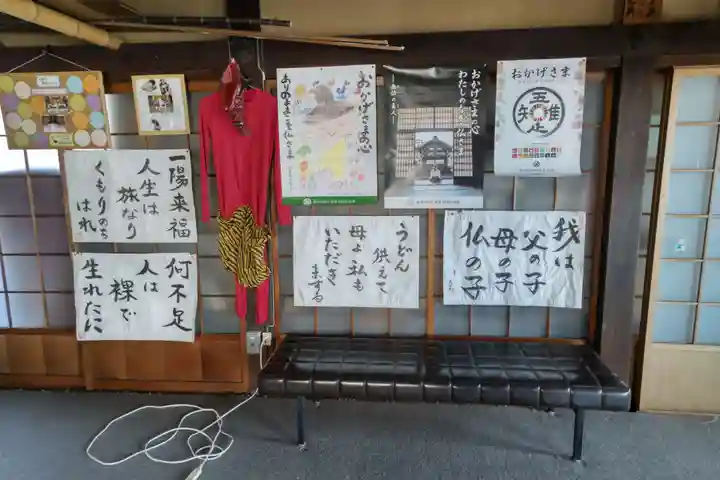 一陽来福
人生は
旅なり
くもりのち
はれ
何不足
人は
裸で
生れたに
おかげさまの心
ありのまゝを仏さま
おかげさまの心
わたしの心も仏さま
おかげさま
吾唯足知
うどん
供えて
母よ私も
いただき
まする
我は
父の子
母の子
仏の子